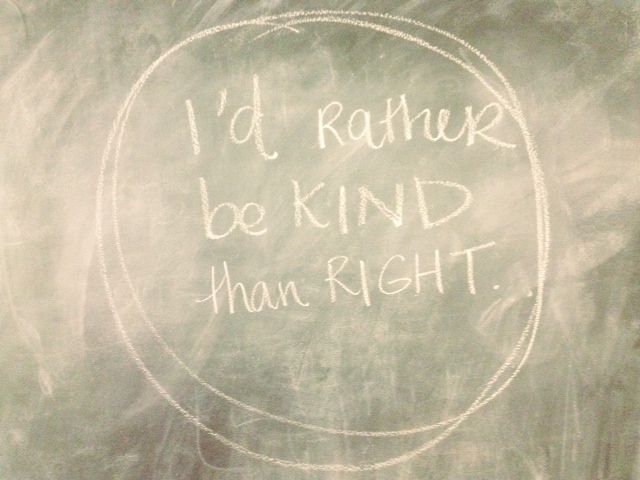 I'd Rather
be KIND
than RIGHT.